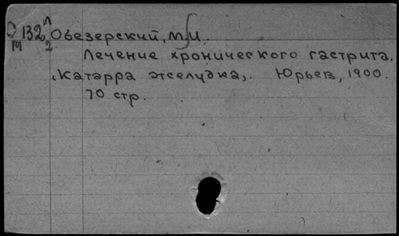 132 Обезерский, М.И.
Лечение хронического гастрита.
(Катарра желудка). Юрьев, 1900.
70 стр.